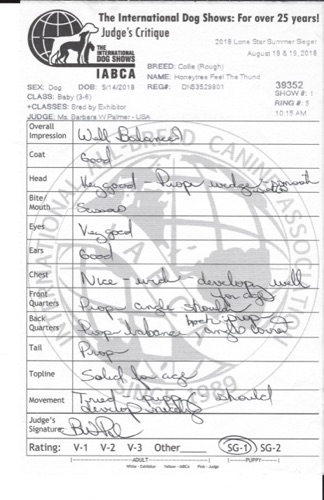 The International Dog Shows: For over 25 years!
Judge's Critique
THE INTERNATIONAL DOG SHOWS
IABCA
2018 Lone Star Summer Sieger
August 18 & 19, 2018
BREED: Collie (Rough)
NAME: Honeytree Feel The Thund
SEX: Dog DOB: 5/14/2018 REG#: DN53529801
39352
SHOW #: 1
CLASS: Baby (3-6)
RING #: 5
+CLASSES: Bred by Exhibitor
10:15 AM
JUDGE: Ms. Barbara W Palmer - USA
Overall Impression Well Balanced
Coat Good
Head Very good - Prop wedge smooth
Bite/Mouth Scissors
Eyes Very good
Ears Good
Chest Nice - develop well
for age
Front Quarters Prop angle shoulder
Back Quarters Prop angle
hock prop
Tail Prop
Topline Solid for age
Movement Tired puppy should
develop nicely
Judge's Signature:
Rating: V-1 V-2 V-3 Other SG-1 SG-2
ADULT PUPPY
White - Exhibitor Yellow - IABCA Pink - Judge
INTERNATIONAL ALL-BREED CANINE ASSOCIATION